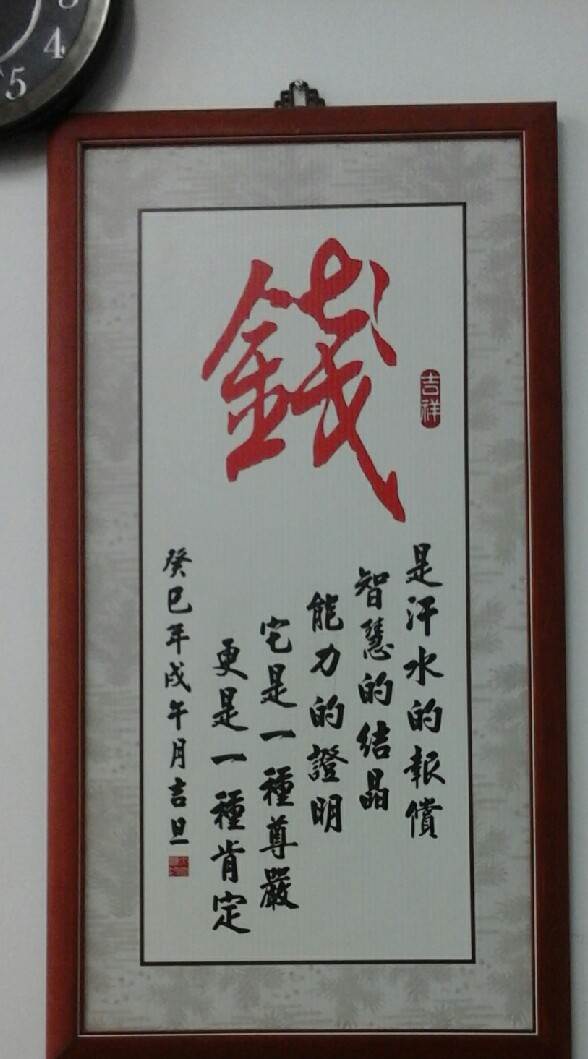 錢
吉祥
是汗水的報償
智慧的結晶
能力的證明
它是一種尊嚴
更是一種肯定
癸巳年戊午月吉旦
4
5